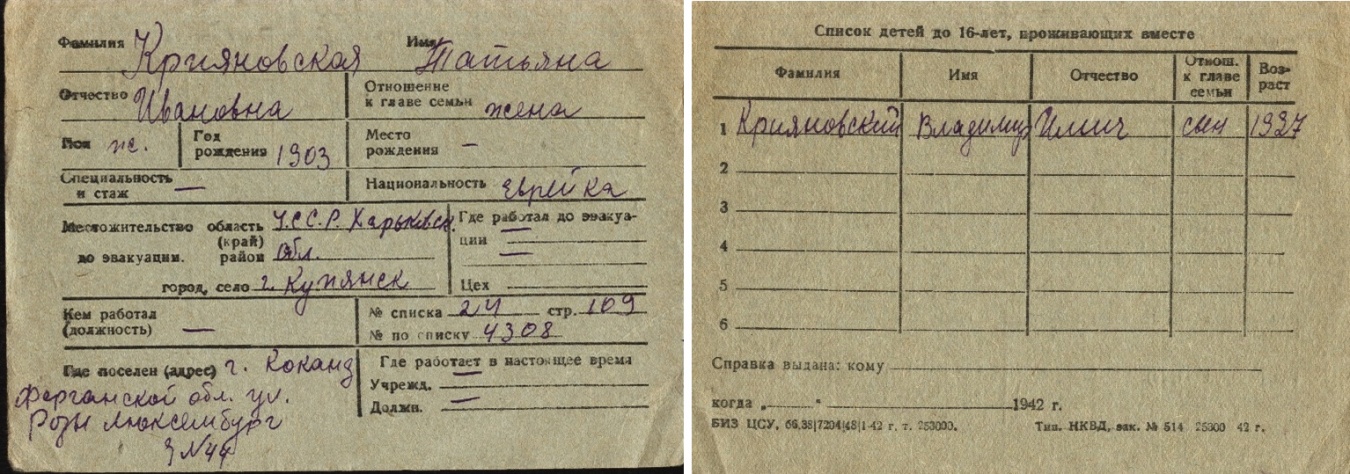 Фамилия Крияновская Имя Татьяна
Отчество Ивановна
Отношение к главе семьи жена
Пол ж. Год рождения 1903 Место рождения —
Специальность и стаж — Национальность еврейка
Местожительство до эвакуации. область (край) У.С.С.Р. Харьковск.
район обл.
город, село г. Купянск
Где работал до эвакуа-
ции —
—
Цех
Кем работал
(должность) —
№ списка 24 стр. 109
№ по списку 4308
Где поселен (адрес) г. Коканд
Ферганской обл. ул.
Розы Люксембург
№44
Где работает в настоящее время
Учрежд. —
Должн. —
Список детей до 16-лет, проживающих вместе
Фамилия Имя Отчество Отнош. к главе семьи Воз-раст
1 Крияновский Владимир Илич сын 1937
2
3
4
5
6
Справка выдана: кому
когда „ “ 1942 г.
БИЗ ЦСУ, 66,38|7204|48|1-42 г. т. 253000. Тип. НКВД, зак. № 514 25300 42 г.